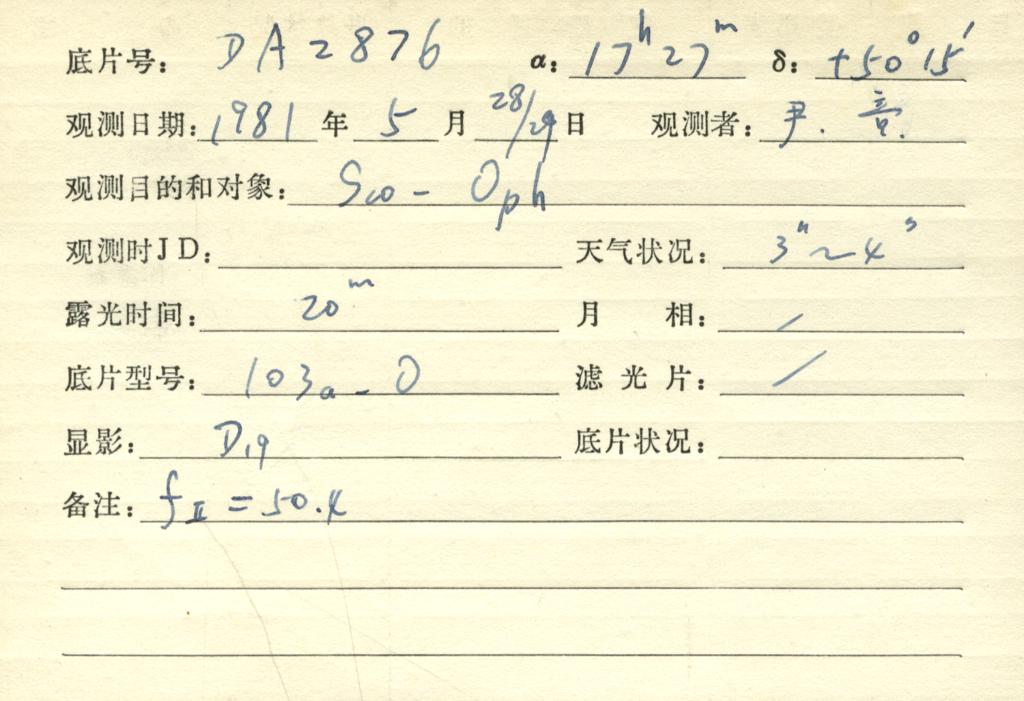 底片号: DA2876 α: 17ʰ27ᵐ δ: +50°15′
观测日期: 1981 年 5 月 28/29 日 观测者: 尹.
观测目的和对象: Sco - Oph
观测时JD: 天气状况: 3"~4"
露光时间: 20ᵐ 月 相: /
底片型号: 103a-O 滤光片: /
显影: D19 底片状况:
备注: fⅡ = 50.4